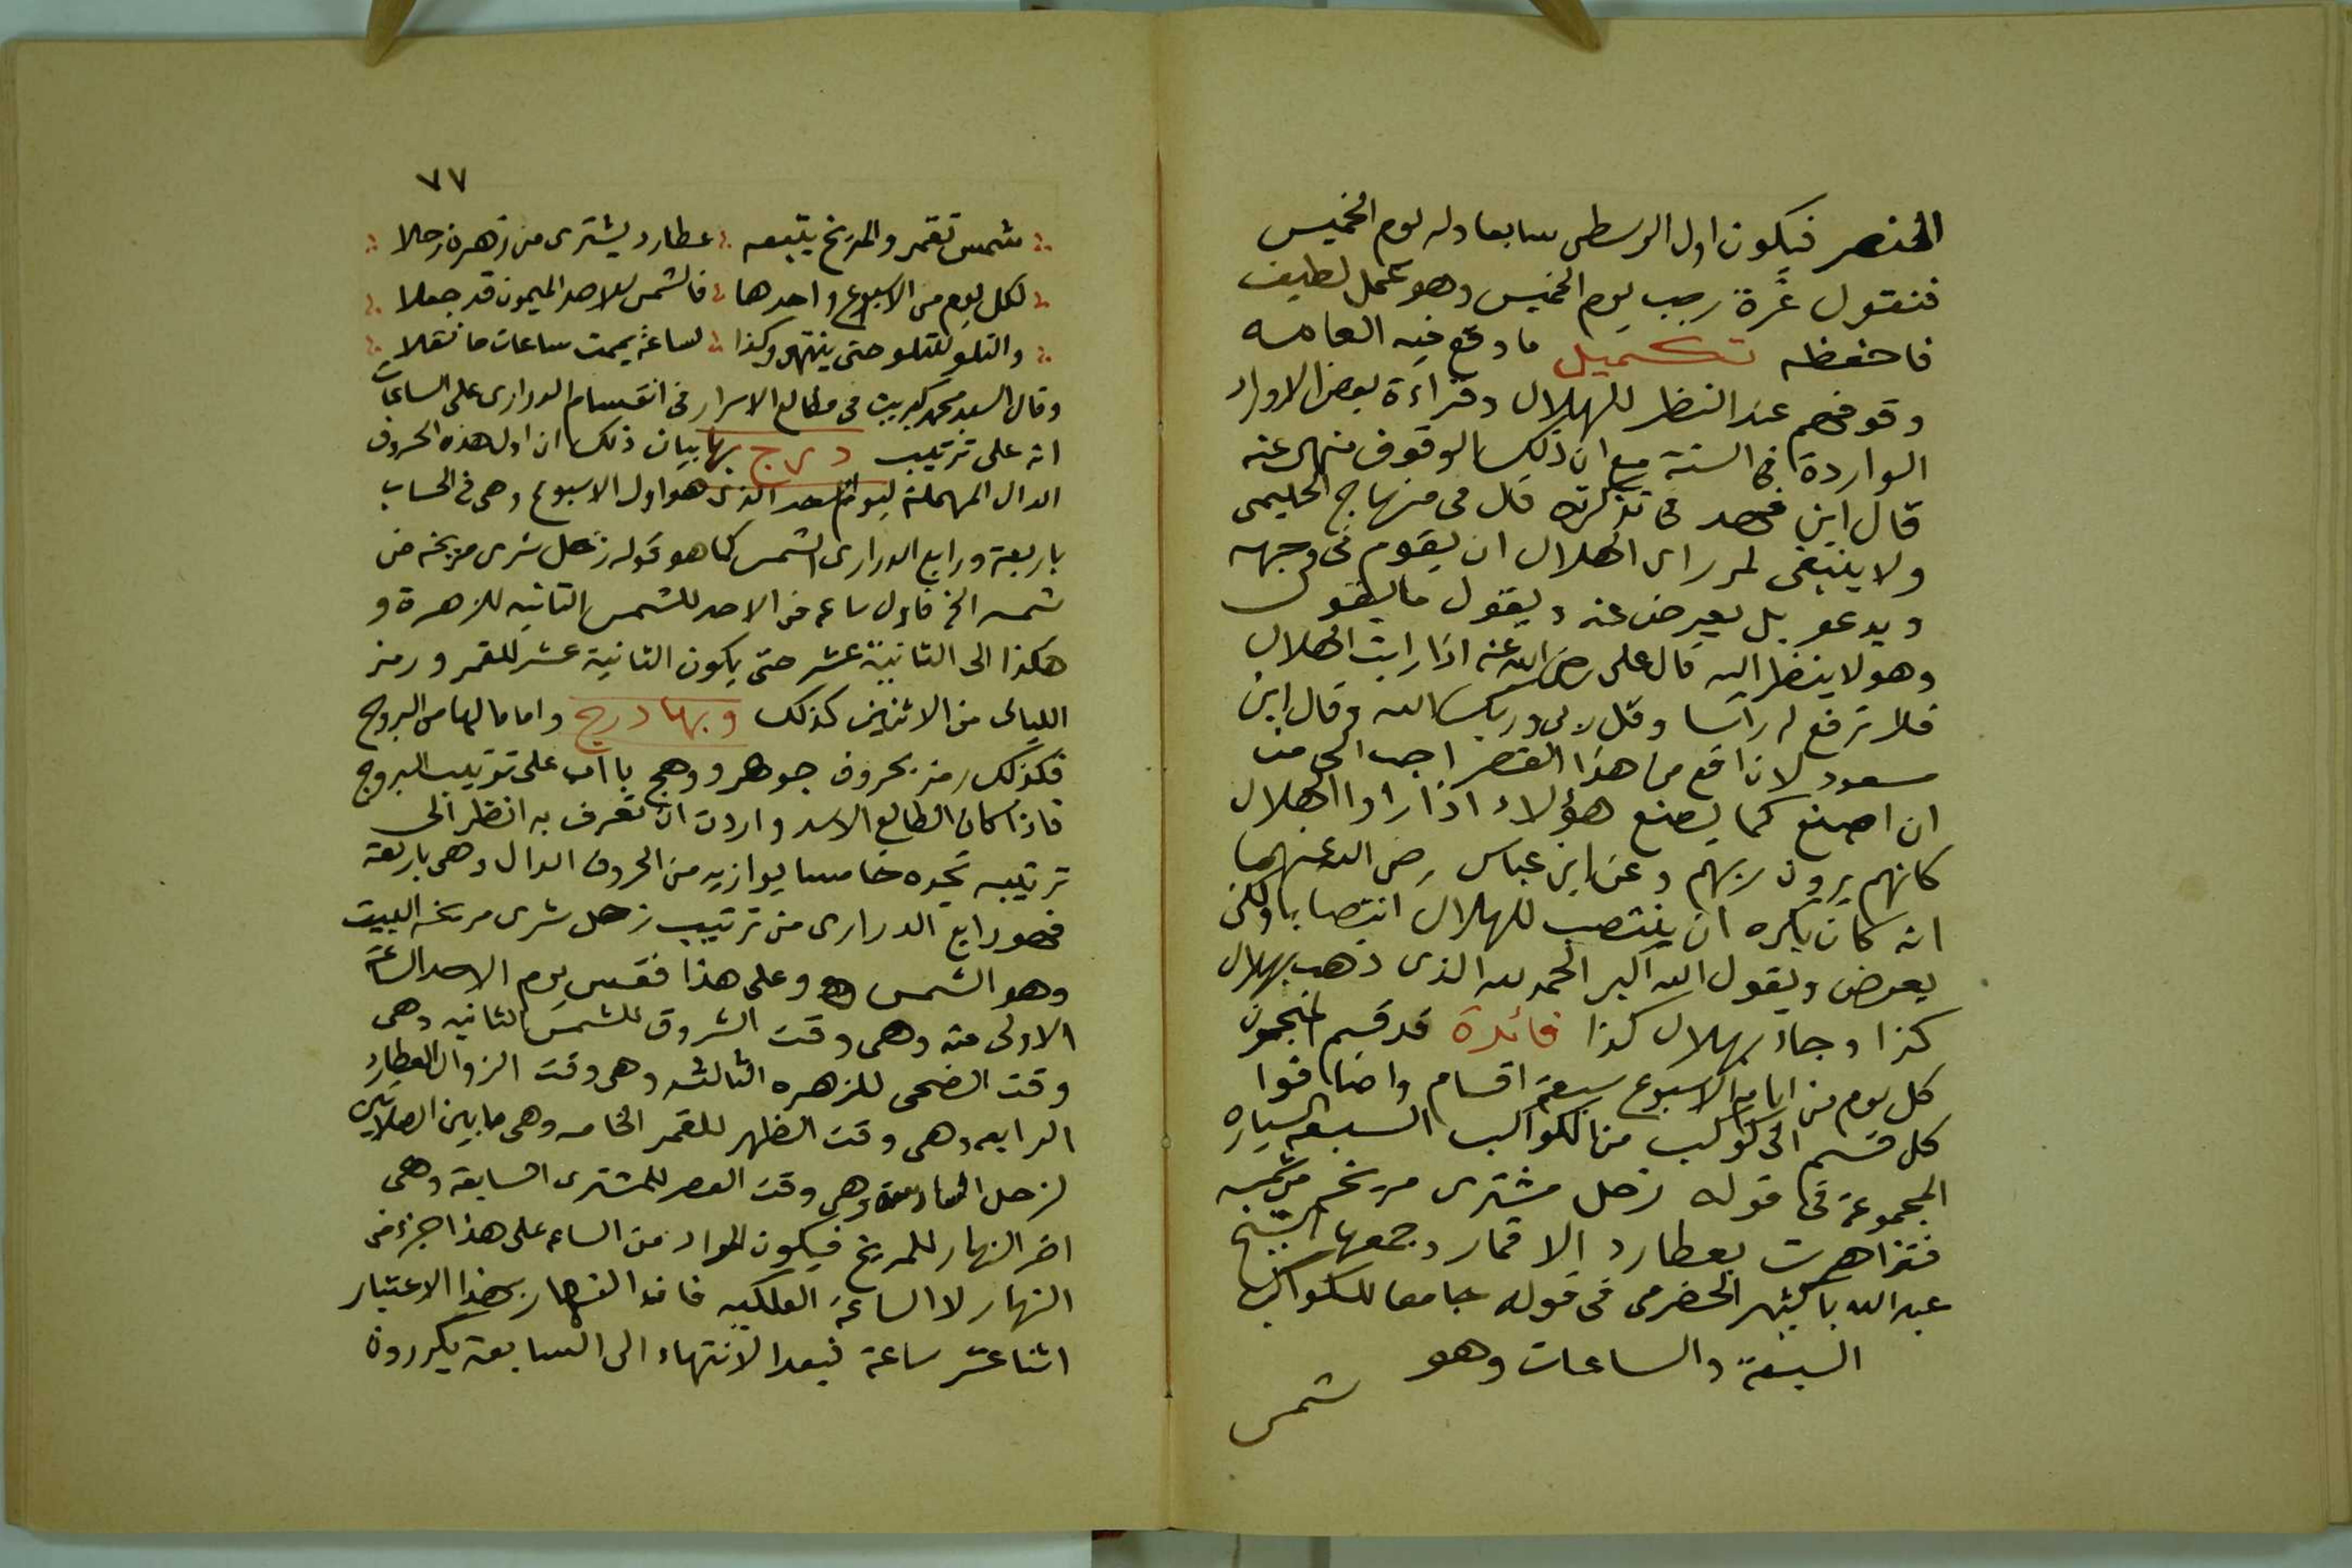 الخنصر فيكون اول الوسطى سابعا وله يوم الخميس
فنقول غرة رجب يوم الخميس وهو عمل لطيف
فاحفظه تكميل ما وقع فيه العامه
وقوفهم عند النظر للهلال وقراءة بعض الاوراد
الواردة فى السنة مع ان ذلك الوقوف منهى عنه
قال ابن فهد فى تذكرته قال فى منهاج الحليمى
ولا ينبغى لمن راى الهلال ان يقوم فى وجهه
ويدعو بل يعرض عنه ويقول ما يقول
وهو لا ينظر اليه قال على رضى الله عنه اذا رايت الهلال
فلا ترفع له راسا وقل ربى وربك الله وقال ابن
مسعود لان اقع من هذا القصر احب الى من
ان اصنع كما يصنع هؤلاء اذا راوا الهلال
كانهم يرون ربهم وعن ابن عباس رضى الله عنهما
انه كان يكره ان ينتصب للهلال انتصابا ولكن
يعرض ويقول الله اكبر الحمد لله الذى ذهب بهلال
كذا وجاء بهلال كذا فائدة قد قسم المنجمون
كل يوم من ايام الاسبوع سبعة اقسام واضافوا
كل قسم الى كوكب من الكواكب السبعة السياره
المجموعة فى قوله زحل مشترى مريخه من شمسه
فتزاهرت بعطارد الاقمار وجمعها الشيخ
عبد الله باكثير الحضرمى فى قوله جامعا للكواكب
السبعة والساعات وهو
شمس
٧٧
شمس تقمر والمريخ يتبعه عطارد يشترى من زهرة زحلا
لكل يوم من الاسبوع واحدها فالشمس للاحد الميمون قد جعلا
والتلو للتلو حتى ينتهى وكذا لساعة يممت ساعات ما نقلا
وقال السيد محمد كبريت فى مطالع الاسرار فى انقسام الدرارى على الساعات
انه على ترتيب د ى ج بها بيان ذلك ان اول هذه الحروف
الدال المهملة ليوم الاحد الذى هو اول الاسبوع وهى فى الحساب
باربعة ورابع الدرارى الشمس كما هو قوله زحل شرى مريخه من
شمسه الخ فاول ساعه من الاحد للشمس الثانيه للزهرة و
هكذا الى الثانية عشر حتى يكون الثانية عشر للقمر ورمز
الليالى من الاثنين كذلك وبها درج واما ما لها من البروج
فكذلك رمز بحروف جوهر ووهج با اب على ترتيب البروج
فاذا كان الطالع الاسد واردت ان تعرف به انظر الى
ترتيبه تجده خامسا يوازيه من الحروف الدال وهى باربعة
فهو رابع الدرارى من ترتيب زحل شرى مريخه البيت
وهو الشمس وعلى هذا فقس يوم الاحد الساعة
الاولى منه وهى وقت الشروق للشمس الثانيه وهى
وقت الضحى للزهره الثالثه وهى وقت الزوال لعطارد
الرابعه وهى وقت الظهر للقمر الخامسه وهى ما بين الصلاتين
لزحل السادسة وهى وقت العصر للمشترى السابعة وهى
اخر النهار للمريخ فيكون المراد من الساعه على هذا جزء من
النهار لا الساعة الفلكيه فان النهار بهذا الاعتبار
اثنا عشر ساعة فبعد الانتهاء الى السابعة يكررون